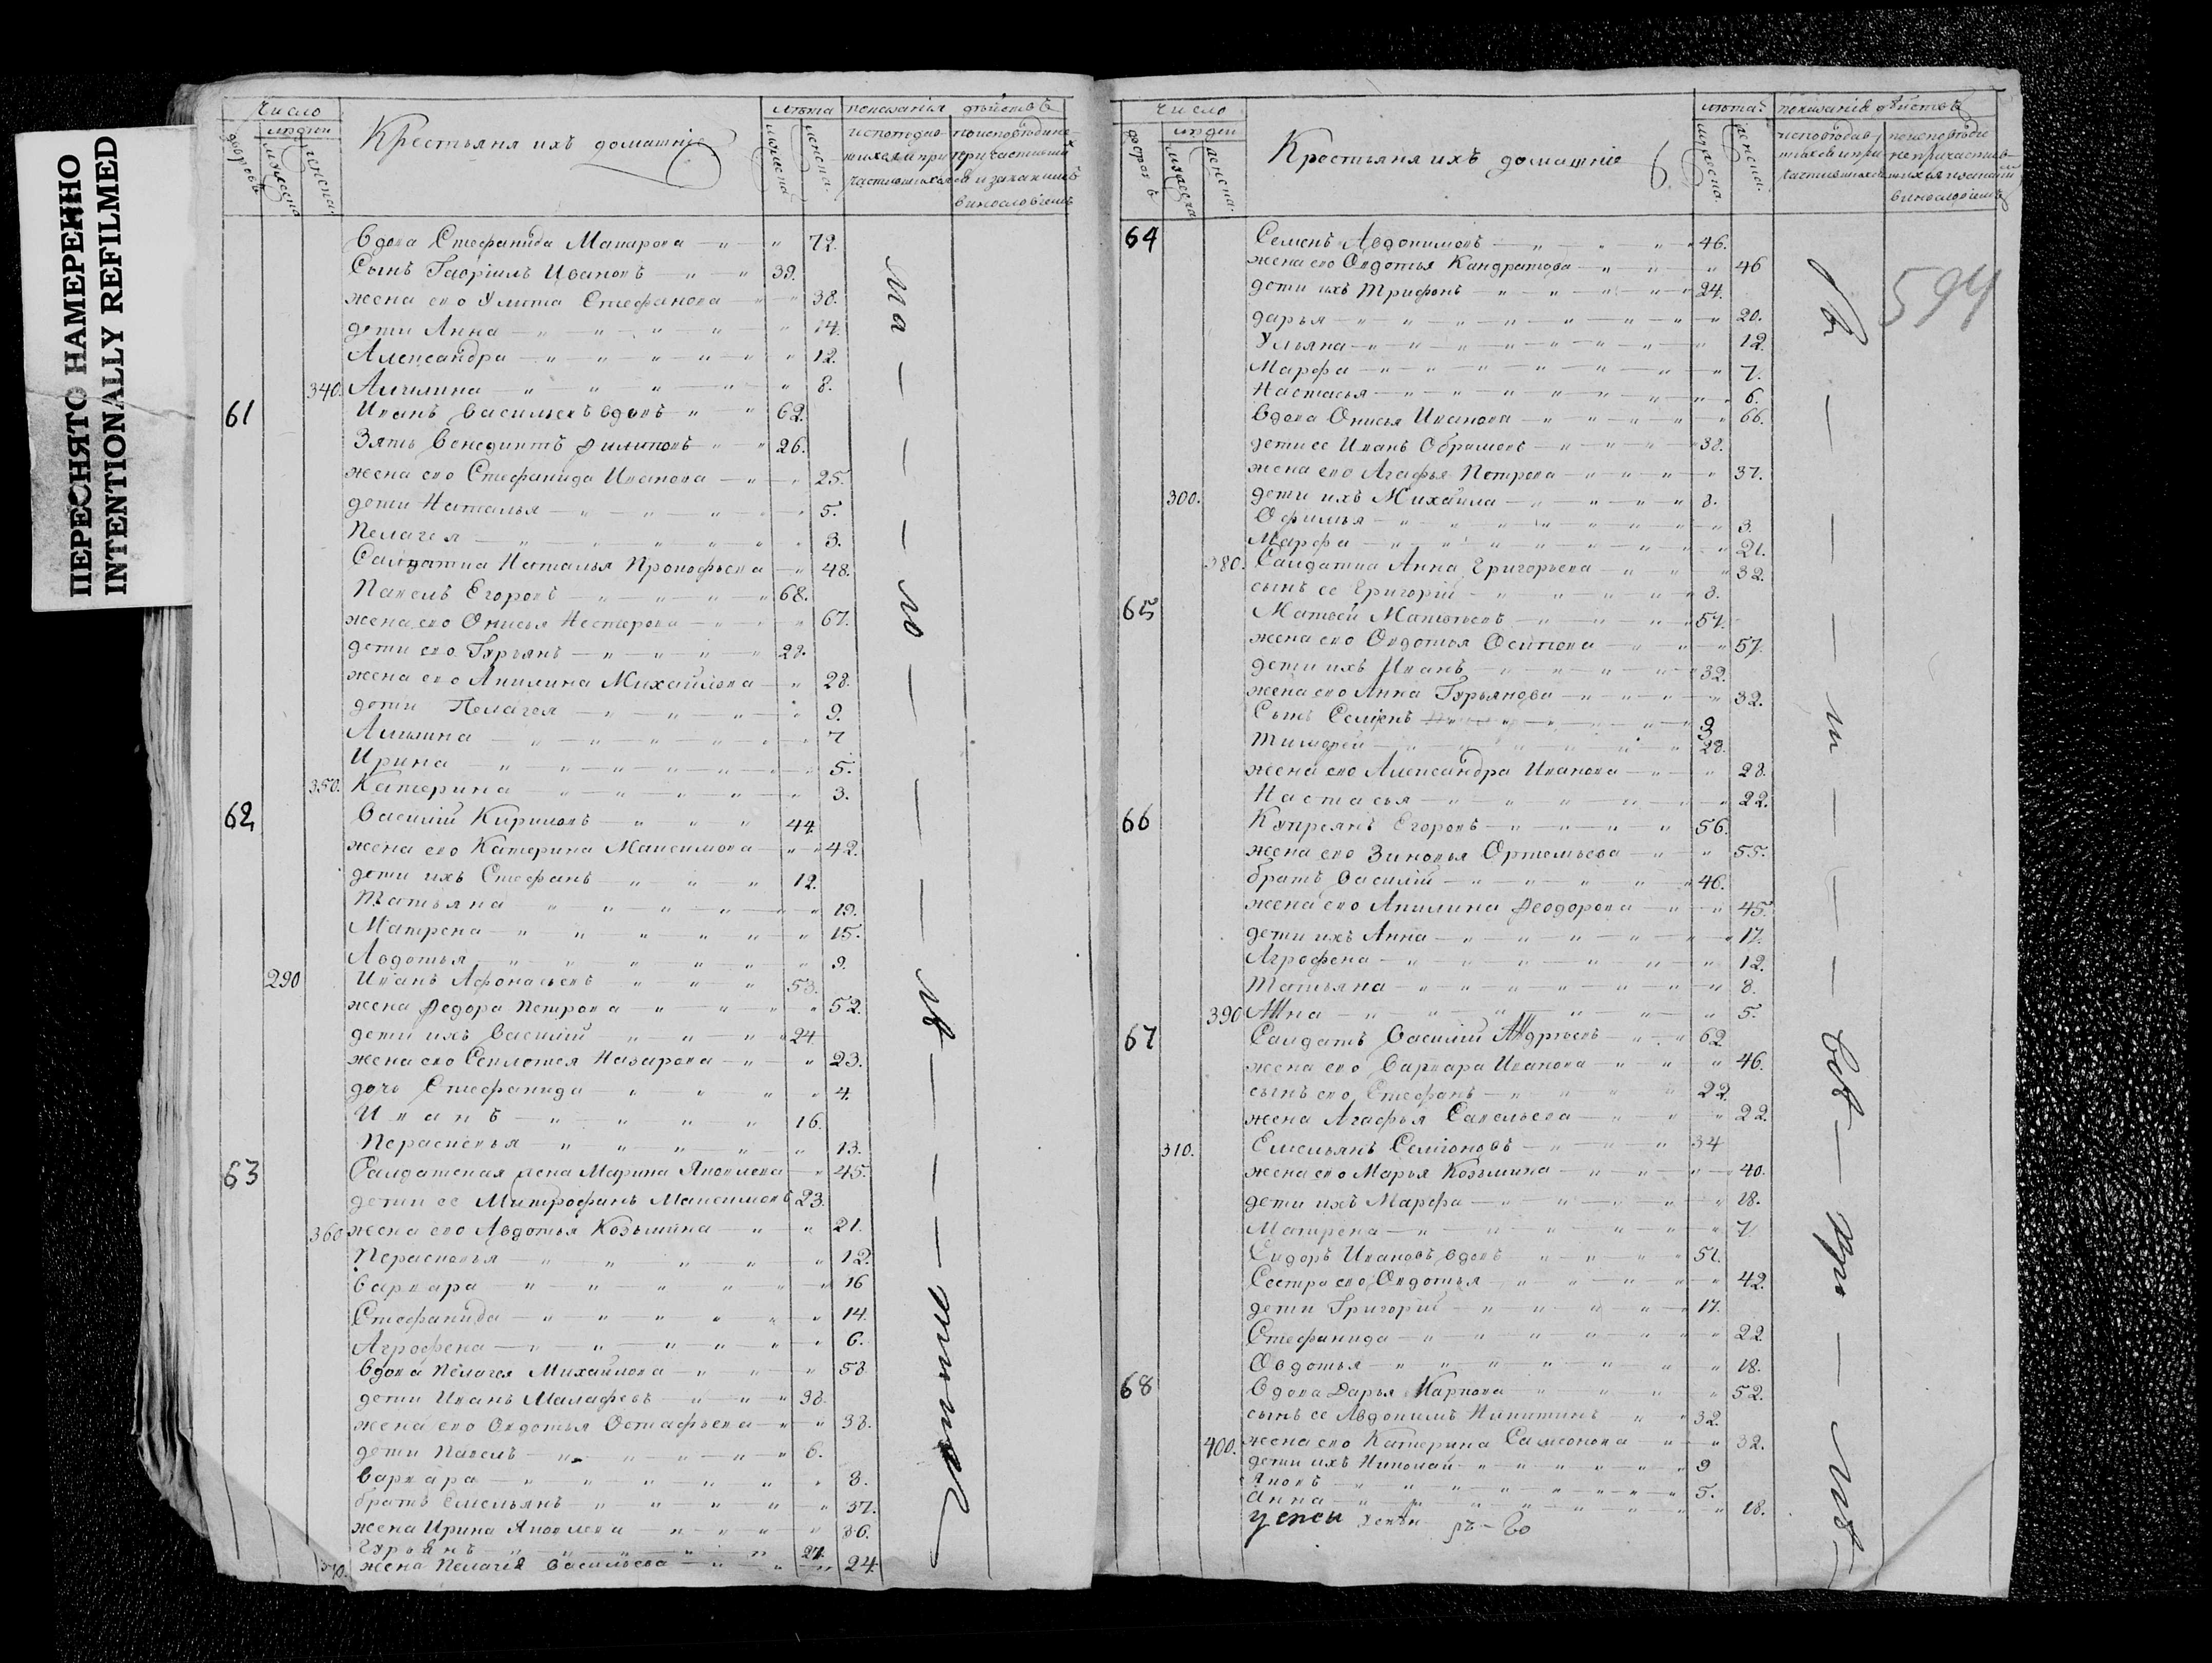 ПЕРЕСНЯТО НАМЕРЕННО
INTENTIONALLY REFILMED
Число лѣта показанія дѣйствъ
Крестьяня ихъ домашніе
Вдова Стефанида Макарова 72.
Сынъ Гавріилъ Ивановъ 39.
жена ево Улита Стефанова 38.
дети Анна 14.
Александра 12.
340. Акилина 8.
61 Иванъ Васильевъ вдовъ 62.
Зять Венедиктъ Филиповъ 26.
жена ево Стефанида Иванова 25.
дети Наталья 5.
Пелагея 3.
Салдатка Наталья Прокофьева 48.
Павелъ Егоровъ 68.
жена ево Онисья Нестерова 67.
дети ево Гурьянъ 28.
жена ево Акилина Михайлова 28.
дети Пелагея 9.
Акилина 7
Ирина 5.
350. Катерина 3.
62 Василій Кириловъ 44.
жена ево Катерина Максимова 42.
дети ихъ Стефанъ 12.
Татьяна 19.
Матрена 15.
Авдотья 9.
290 Иванъ Афонасьевъ 53.
жена Федора Петрова 52.
дети ихъ Василій 24
жена ево Секлетея Назарова 23.
дочь Стефанида 4.
Иванъ 16.
Пераскевья 13.
63 Салдатская жена Марина Яковлева 45.
дети ее Митрофанъ Максимовъ 23.
360 жена ево Авдотья Козьмина 21.
Пераскевья 12.
Варвара 16
Стефанида 14.
Агрофена 6.
Вдова Пелагея Михайлова 58
дети Иванъ Малафеевъ 38.
жена ево Овдотья Остафьева 38.
дети Павелъ 6.
Варвара 3.
братъ Емельянъ 37.
жена Ирина Яковлева 36.
Гурьянъ 27.
370. жена Пелагея Васильева 24.
Число лѣта показаніе дѣйствъ
Крестьяня ихъ домашніе
594
64 Семенъ Авдокимовъ 46.
жена ево Овдотья Кандратова 46
дети ихъ Трифонъ 24.
дарья 20.
Ульяна 12.
Марфа 7.
Настасья 6.
Вдова Онисья Иванова 66.
дети ее Иванъ Обрамовъ 38.
жена ево Агафья Петрова 37.
300. дети ихъ Михайла 8.
Офимья 3.
Марфа 21.
380. Салдатка Анна Григорьева 32.
сынъ ее Григорій 8.
65 Матвей Матвеевъ 57.
жена ево Овдотья Осипова 57.
дети ихъ Иванъ 32.
жена ево Анна Гурьянова 32.
Сынъ Семіенъ 9
Тимофей 28.
жена ево Александра Иванова 28.
Настасья 22.
66 Купреянъ Егоровъ 56.
жена ево Зиновья Ортемьева 55.
братъ Василій 46.
жена ево Акилина Феодорова 45.
дети ихъ Анна 17.
Агрофена 12.
Татьяна 8.
390 Анна 5.
67 Салдатъ Василій Андреевъ 62
жена ево Варвара Иванова 46.
сынъ ево Стефанъ 22.
жена Агафья Савельева 22.
310. Емельянъ Семіоновъ 34
жена ево Марья Козьмина 40.
дети ихъ Марфа 18.
Матрена 7.
Сидоръ Ивановъ вдовъ 51.
Сестра ево Овдотья 42.
дети Григорій 17.
Стефанида 22
Овдотья 18.
68 Вдова Дарья Маркова 52.
сынъ ее Авдокимъ Никитинъ 32.
400. жена ево Катерина Самсонова 32.
дети ихъ Николай 9
Яковъ 5.
Анна 18.